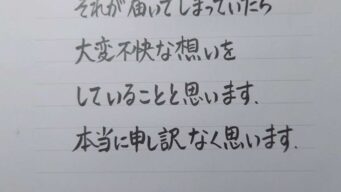 それが届いてしまっていたら
大変不快な想いを
していることと思います.
本当に申し訳なく思います.